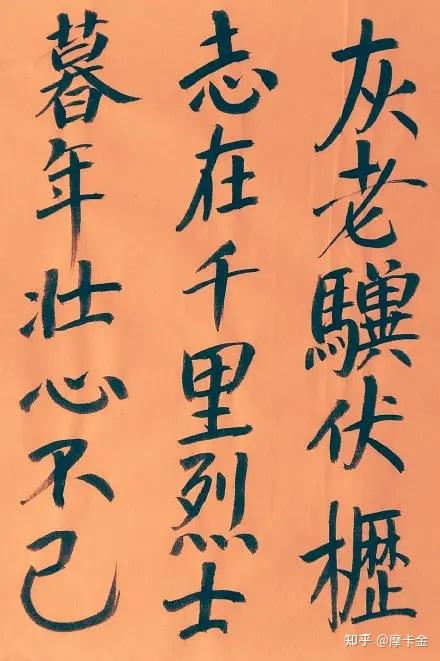 灰老驥伏櫪
志在千里烈士
暮年壮心不已
知乎 @摩卡金